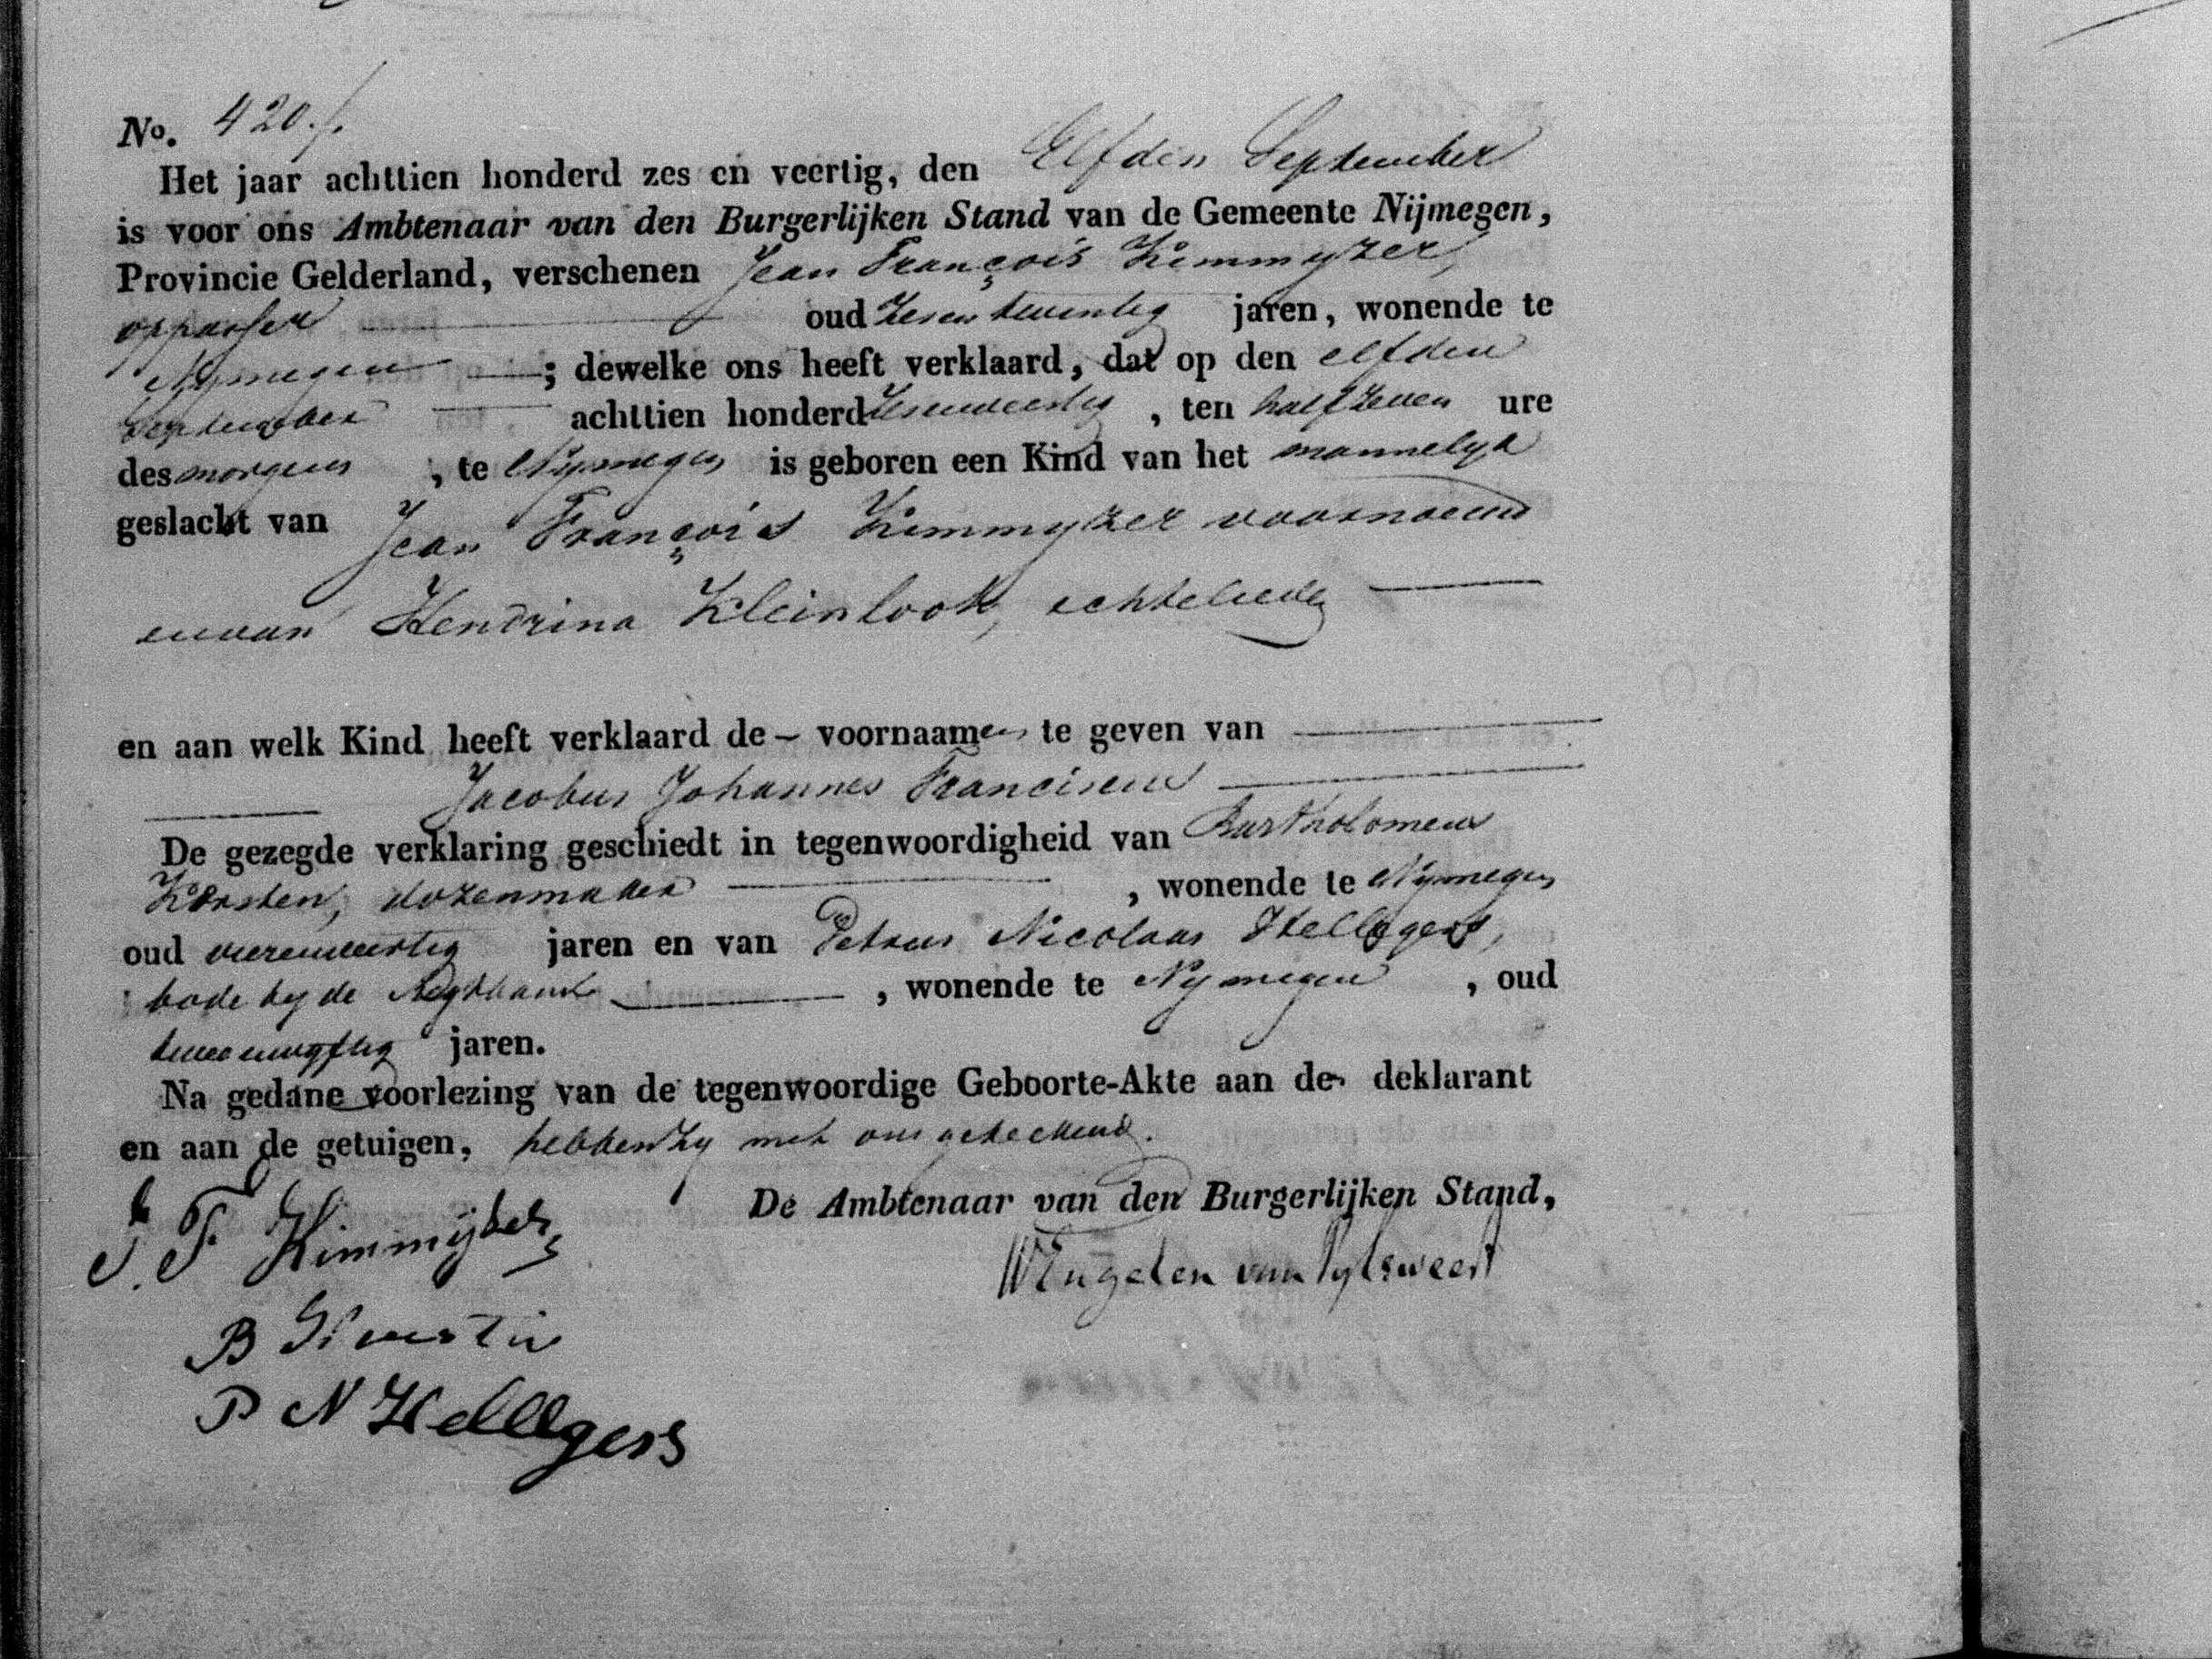 No. 420./.
Het jaar achttien honderd zes en veertig, den Elfden September
is voor ons Ambtenaar van den Burgerlijken Stand van de Gemeente Nijmegen,
Provincie Gelderland, verschenen Jean François Kimmyzer,
oppasser oud zesentwintig jaren, wonende te
Nymegen ; dewelke ons heeft verklaard, dat op den elfden
September achttien honderd zesenveertig , ten half zeven ure
des morgens , te Nymegen is geboren een Kind van het mannelyk
geslacht van Jean François Kimmyzer voornoemd
en van Hendrina Kleinlook, echtelieden
en aan welk Kind heeft verklaard de – voornaamen te geven van
Jacobus Johannes Franciscus
De gezegde verklaring geschiedt in tegenwoordigheid van Bartholomeus
Korsten, dozenmaker , wonende te Nymegen
oud vierenveertig jaren en van Petrus Nicolaas Hellegers,
bode by de Regtbank , wonende te Nymegen , oud
tweeenvyftig jaren.
Na gedane voorlezing van de tegenwoordige Geboorte-Akte aan den deklarant
en aan de getuigen, hebben zy met ons geteekend.
De Ambtenaar van den Burgerlijken Stand,
J. F. Kimmijzer
W Engelen van Pylsweert
B
P N Hellegers